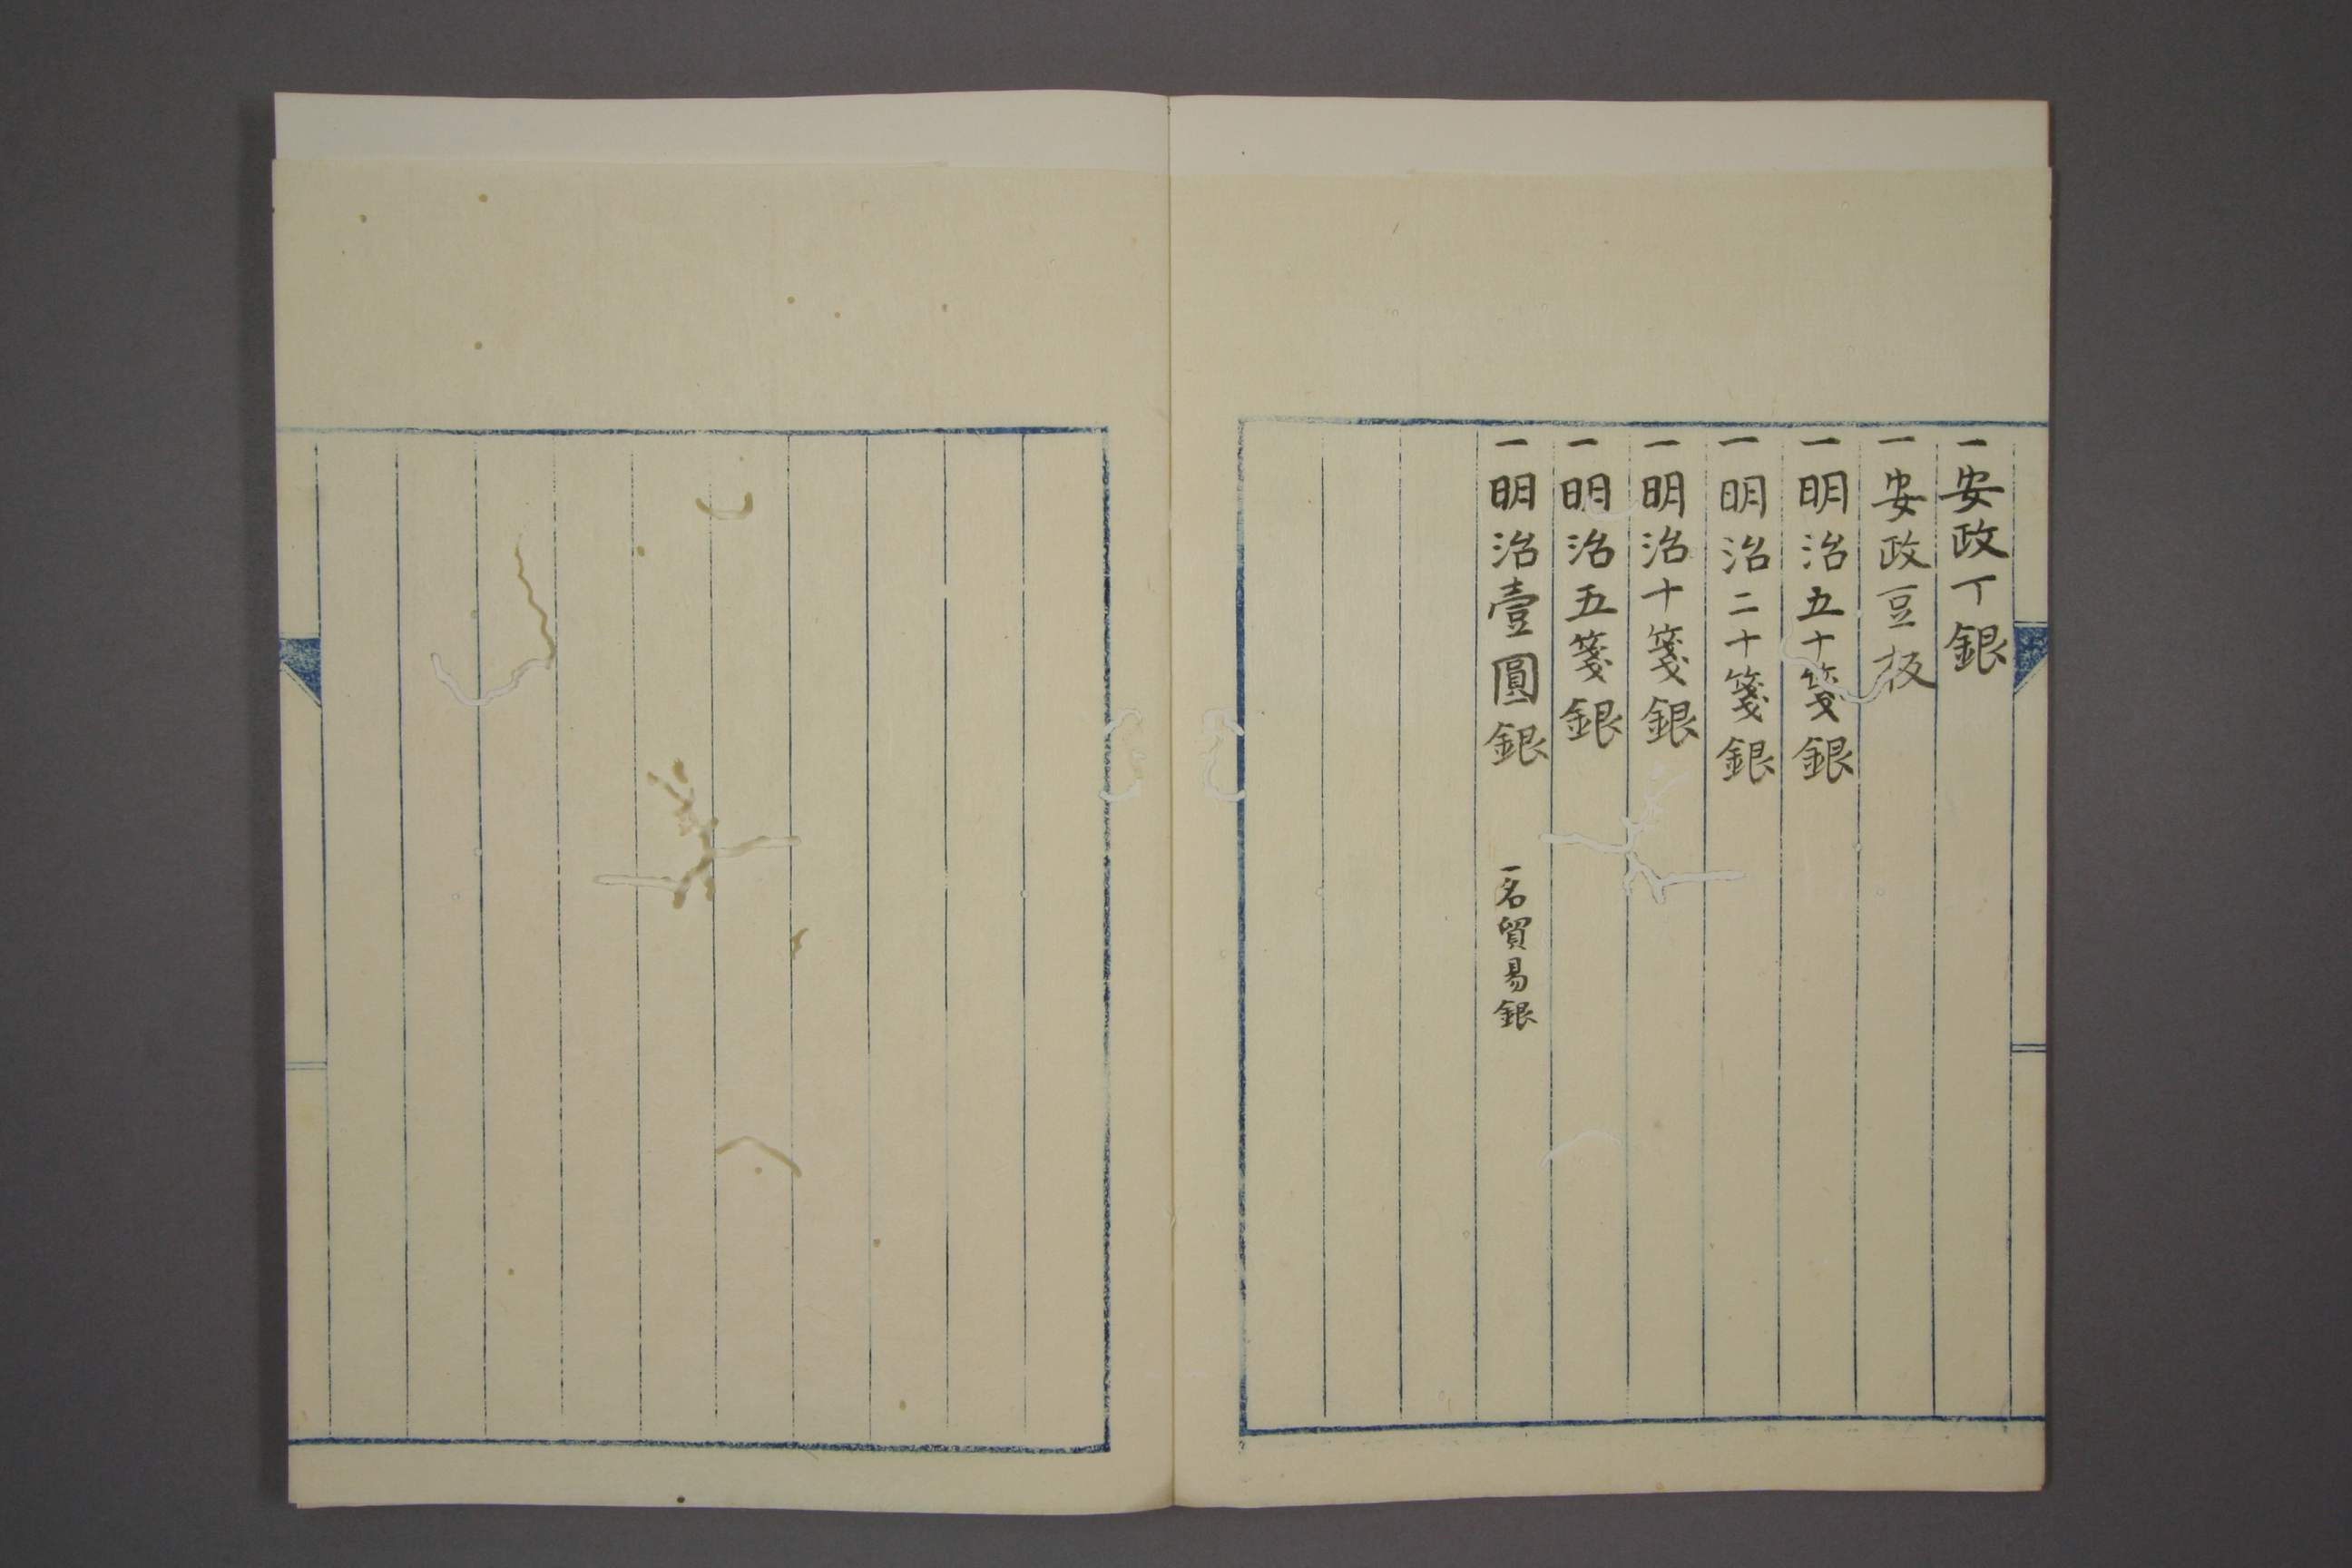 一安政丁銀
一安政豆板
一明治五十箋銀
一明治二十箋銀
一明治十箋銀
一明治五箋銀
一明治壹圓銀 一名貿易銀